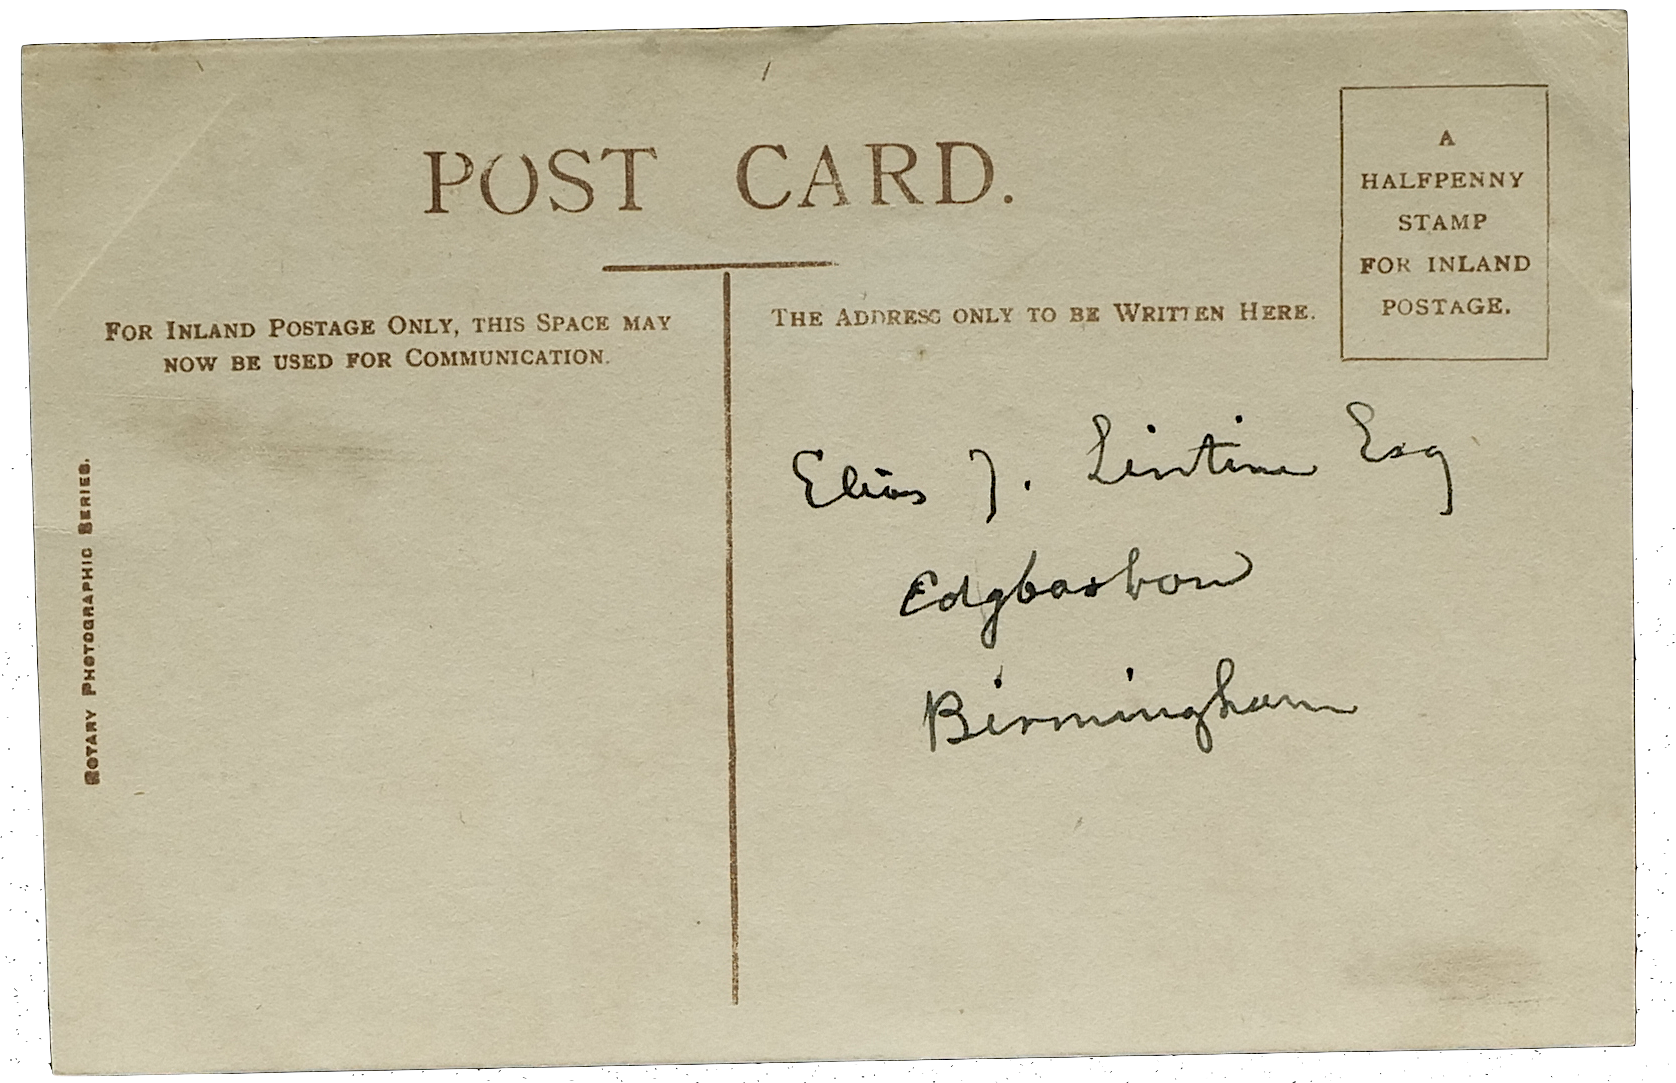 POST CARD.
A
HALFPENNY
STAMP
FOR INLAND
POSTAGE.
FOR INLAND POSTAGE ONLY, THIS SPACE MAY
NOW BE USED FOR COMMUNICATION.
THE ADDRESS ONLY TO BE WRITTEN HERE.
ROTARY PHOTOGRAPHIC SERIES.
Elias J. Lintine Esq
Edgbaston
Birmingham